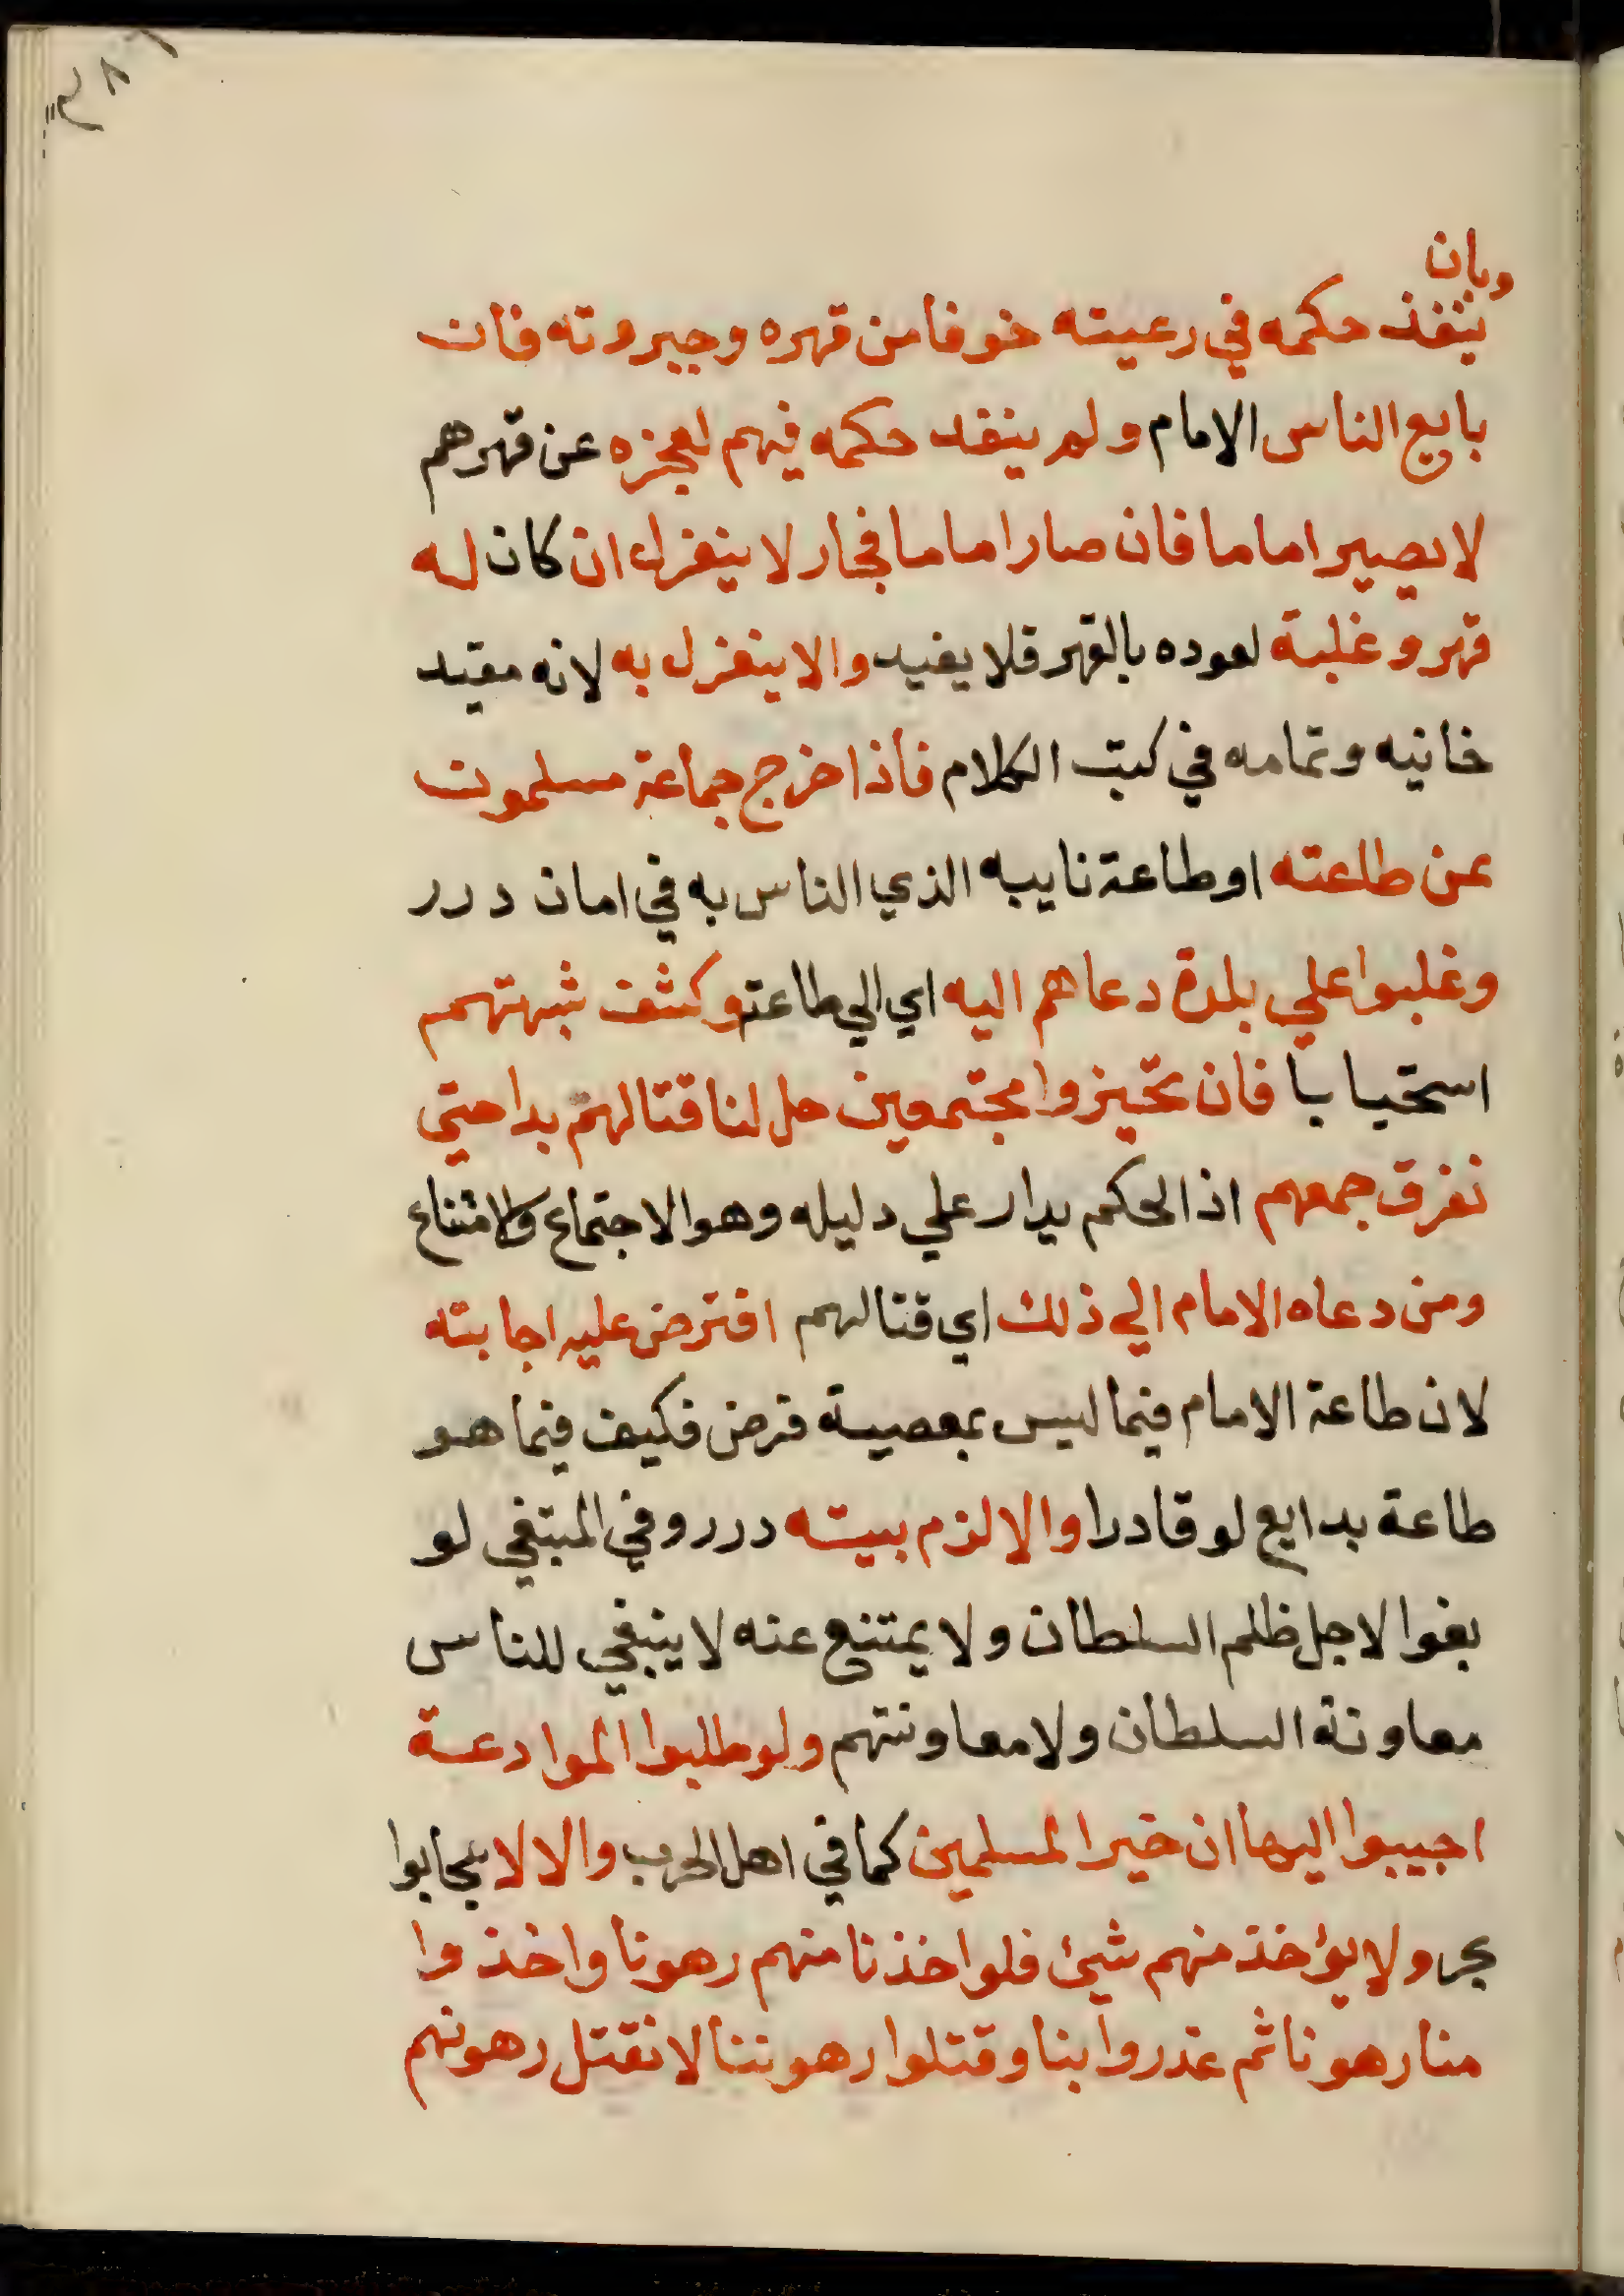 وبان
ينفذ حكمه في رعيته خوفا من قهره وجبروته فان
بايع الناس الامام ولم ينفذ حكمه فيهم لعجزه عن قهرهم
لا يصير اماما فان صار اماما فجار لا ينعزل ان كان له
قهر وغلبة لعوده بالقهر فلا يفيد والا ينعزل به لانه مفيد
خانيه وتمامه في كتب الكلام فاذا خرج جماعة مسلمون
عن طاعته او طاعة نايبه الذي الناس به في امان درر
وغلبوا علي بلدة دعاهم اليه اي الي طاعته وكشف شبهتهم
استحبابا فان تحيزوا مجتمعين حل لنا قتالهم بدا حتي
نفرق جمعهم اذ الحكم يدار علي دليله وهو الاجتماع والامتناع
ومن دعاه الامام الي ذلك اي قتالهم افترض عليه اجابته
لان طاعة الامام فيما ليس بمعصية فرض فكيف فيما هو
طاعة بدايع لو قادرا والا لزم بيته درر وفي المبتغي لو
بغوا لاجل ظلم السلطان ولا يمتنع عنه لا ينبغي للناس
معاونة السلطان ولا معاونتهم ولو طلبوا الموادعة
اجيبوا اليها ان خيرا لمسلمين كما في اهل الحرب والا لا يجابوا
بحر ولا يؤخذ منهم شيئ فلو اخذنا منهم رهونا واخذوا
منا رهونا ثم غدروا بنا وقتلوا رهوننا لا نقتل رهونهم